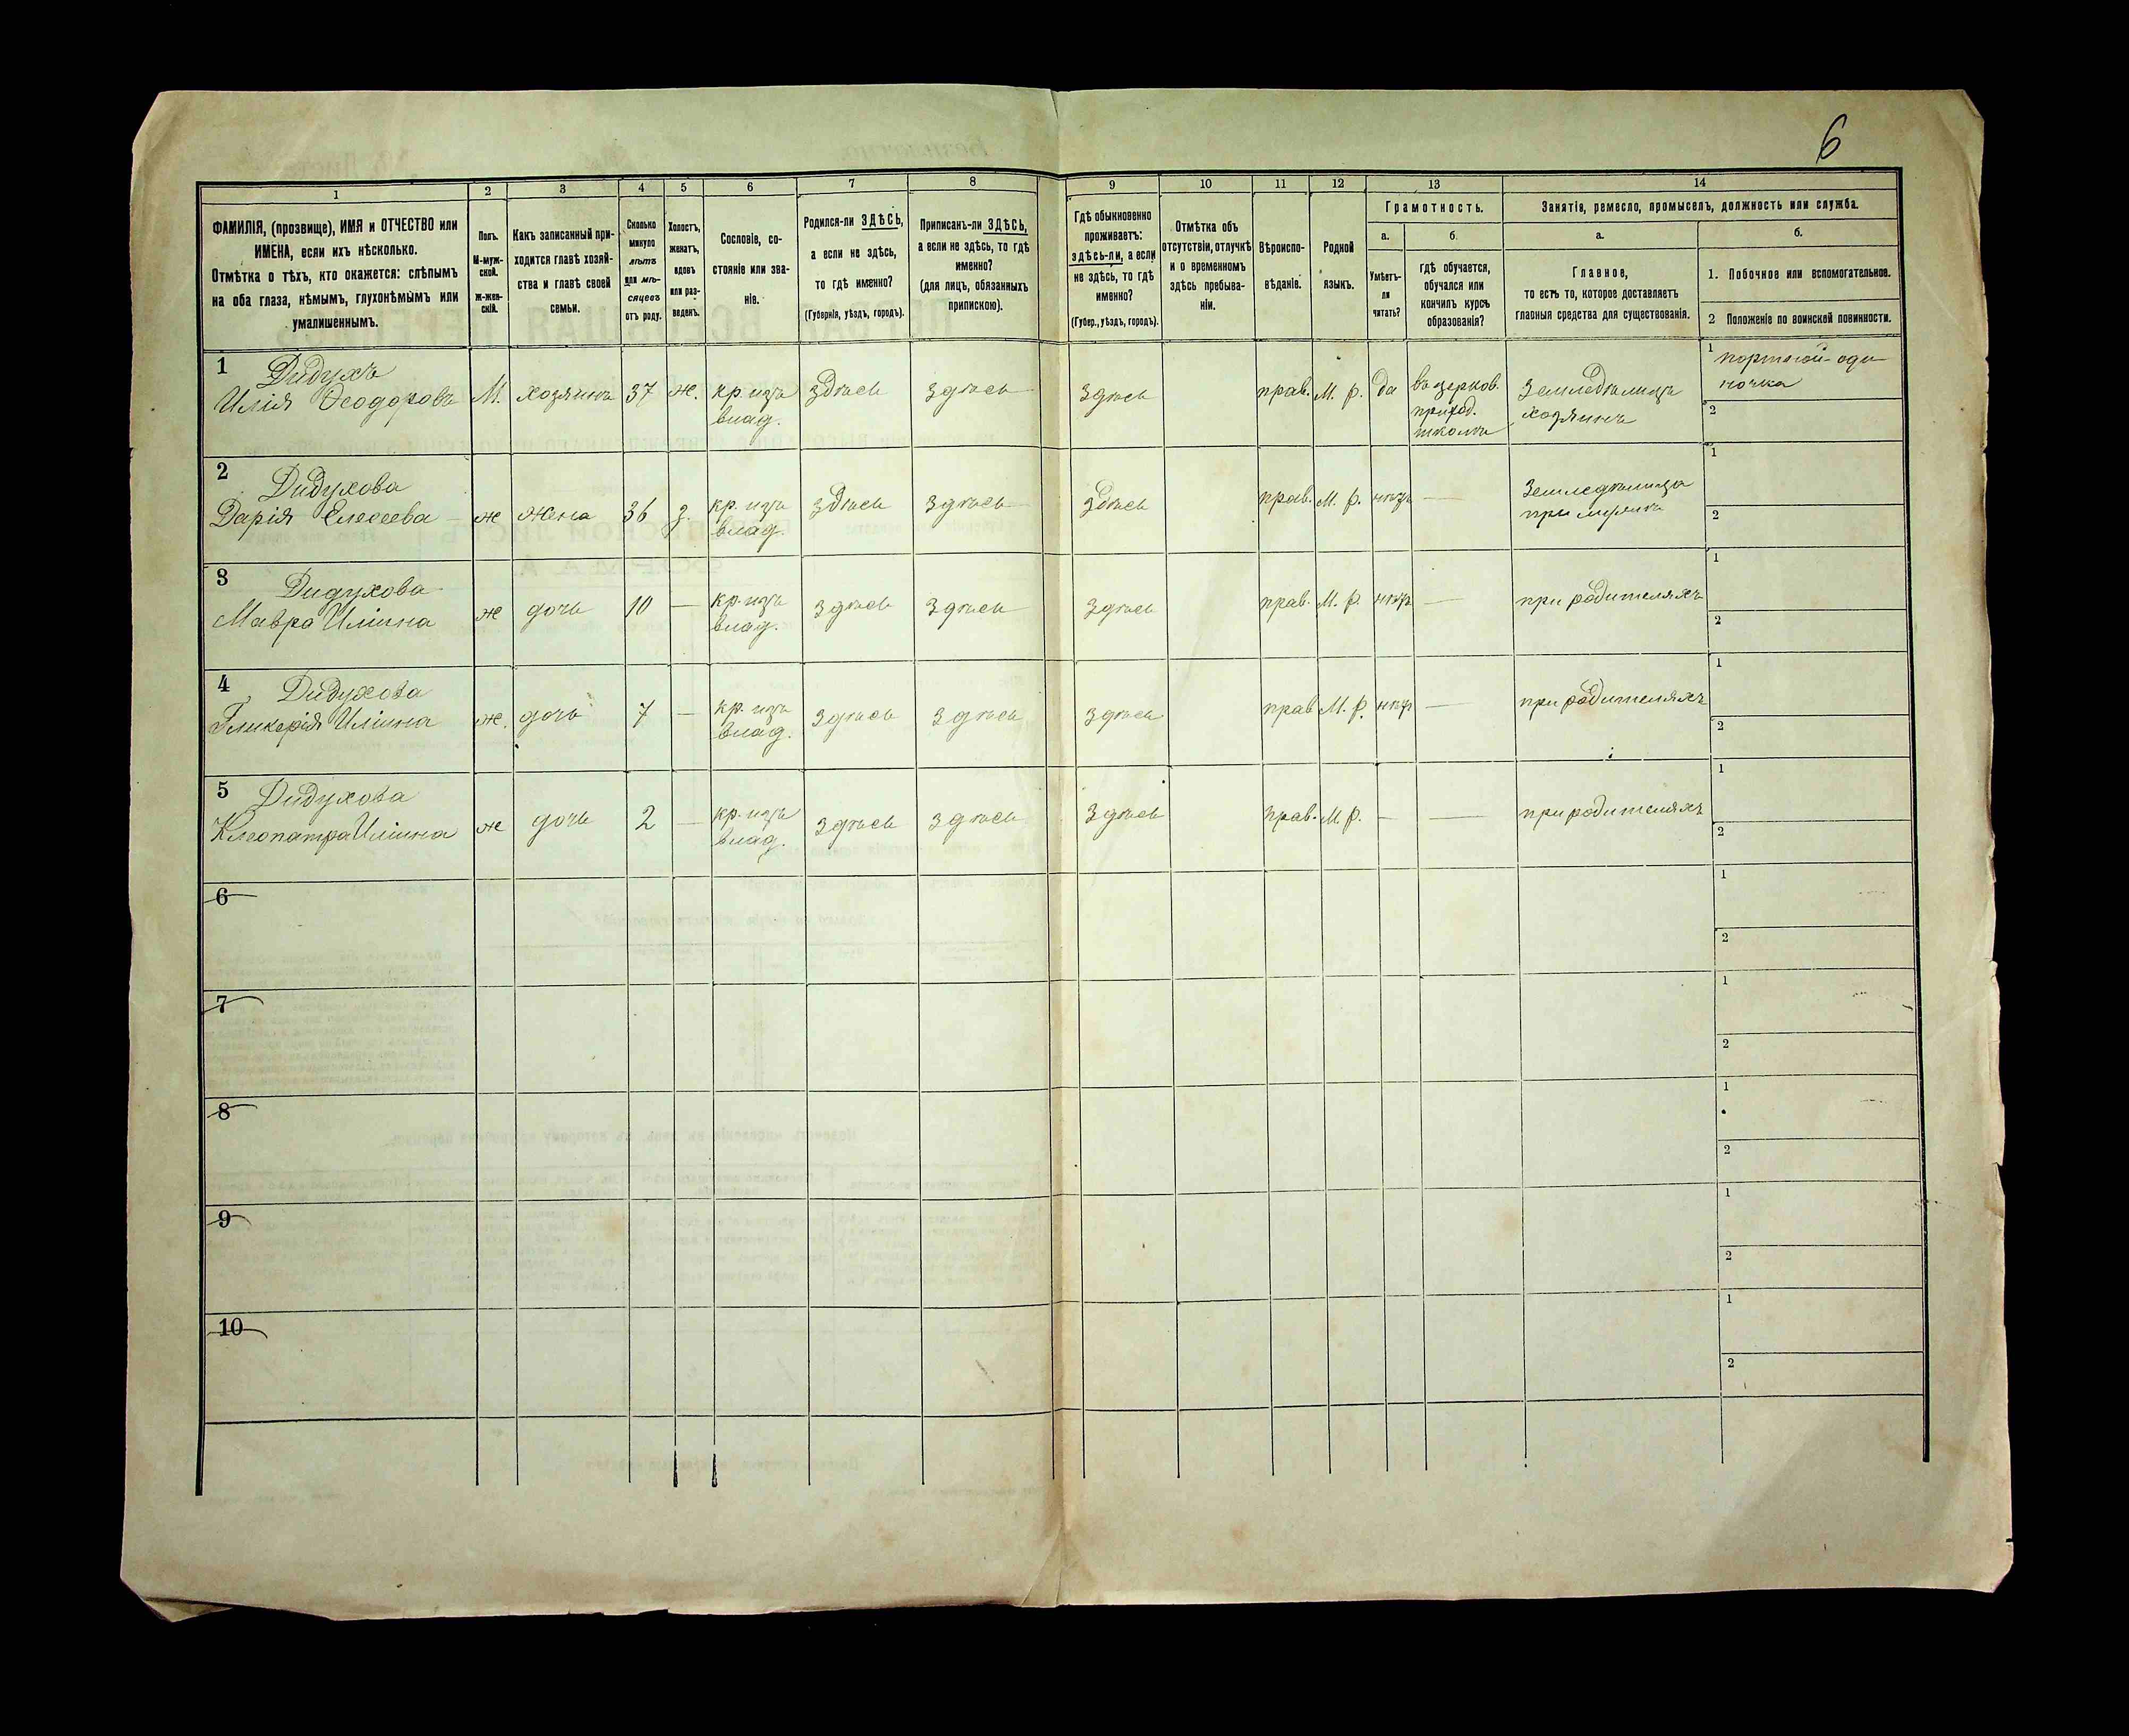 6
1 2 3 4 5 6 7 8 9 10 11 12 13 14
ФАМИЛІЯ, (прозвище), ИМЯ и ОТЧЕСТВО или
ИМЕНА, если ихъ нѣсколько.
Отмѣтка о тѣхъ, кто окажется: слѣпымъ
на оба глаза, нѣмымъ, глухонѣмымъ или
умалишеннымъ.
Полъ.
М-муж-
ской.
ж-жен-
скій.
Какъ записанный при-
ходится главѣ хозяй-
ства и главѣ своей
семьи.
Сколько
минуло
лѣтъ
или мѣ-
сяцевъ
отъ роду.
Холостъ,
женатъ,
вдовъ
или раз-
веденъ.
Сословіе, со-
стояніе или зва-
ніе.
Родился-ли ЗДѢСЬ,
а если не здѣсь,
то гдѣ именно?
(Губернія, уѣздъ, городъ).
Приписанъ-ли ЗДѢСЬ,
а если не здѣсь, то гдѣ
именно?
(для лицъ, обязанныхъ
припискою).
Гдѣ обыкновенно
проживаетъ:
здѣсь-ли, а если
не здѣсь, то гдѣ
именно?
(Губер., уѣздъ, городъ).
Отмѣтка объ
отсутствіи, отлучкѣ
и о временномъ
здѣсь пребыва-
ніи.
Вѣроиспо-
вѣданіе.
Родной
языкъ.
Грамотность.
а.
Умѣетъ-
ли
читать?
б.
гдѣ обучается,
обучался или
кончилъ курсъ
образованія?
Занятія, ремесло, промыселъ, должность или служба.
а.
Главное,
то есть то, которое доставляетъ
главныя средства для существованія.
б.
1. Побочное или вспомогательное.
2 Положеніе по воинской повинности.
1 Дидухъ
Илія Ѳеодоровъ М. хозяинъ 37 ж. кр. изъ
влад. здѣсь здѣсь здѣсь прав. М. р. да въ церков.
приход.
школѣ
Земледѣлецъ
хозяинъ
1 портной-оди
ночка
2
2 Дидухова
Дарія Елесеева ж жена 36 з. кр. изъ
влад. здѣсь здѣсь здѣсь прав. М. р. — Земледѣлица
при
1
2
3 Дидухова
Мавра Иліина ж дочь 10 — кр. изъ
влад. здѣсь здѣсь здѣсь прав. М. р. — при родителяхъ
1
2
4 Дидухова
Гликерія Иліина ж. дочь 7 — кр. изъ
влад. здѣсь здѣсь здѣсь прав М. р. — при родителяхъ
1
2
5 Дидухова
Клеопатра Иліина ж дочь 2 — кр. изъ
влад. здѣсь здѣсь здѣсь прав. М. р. — — при родителяхъ
1
2
6
1
2
7
1
2
8
1
2
9
1
2
10
1
2